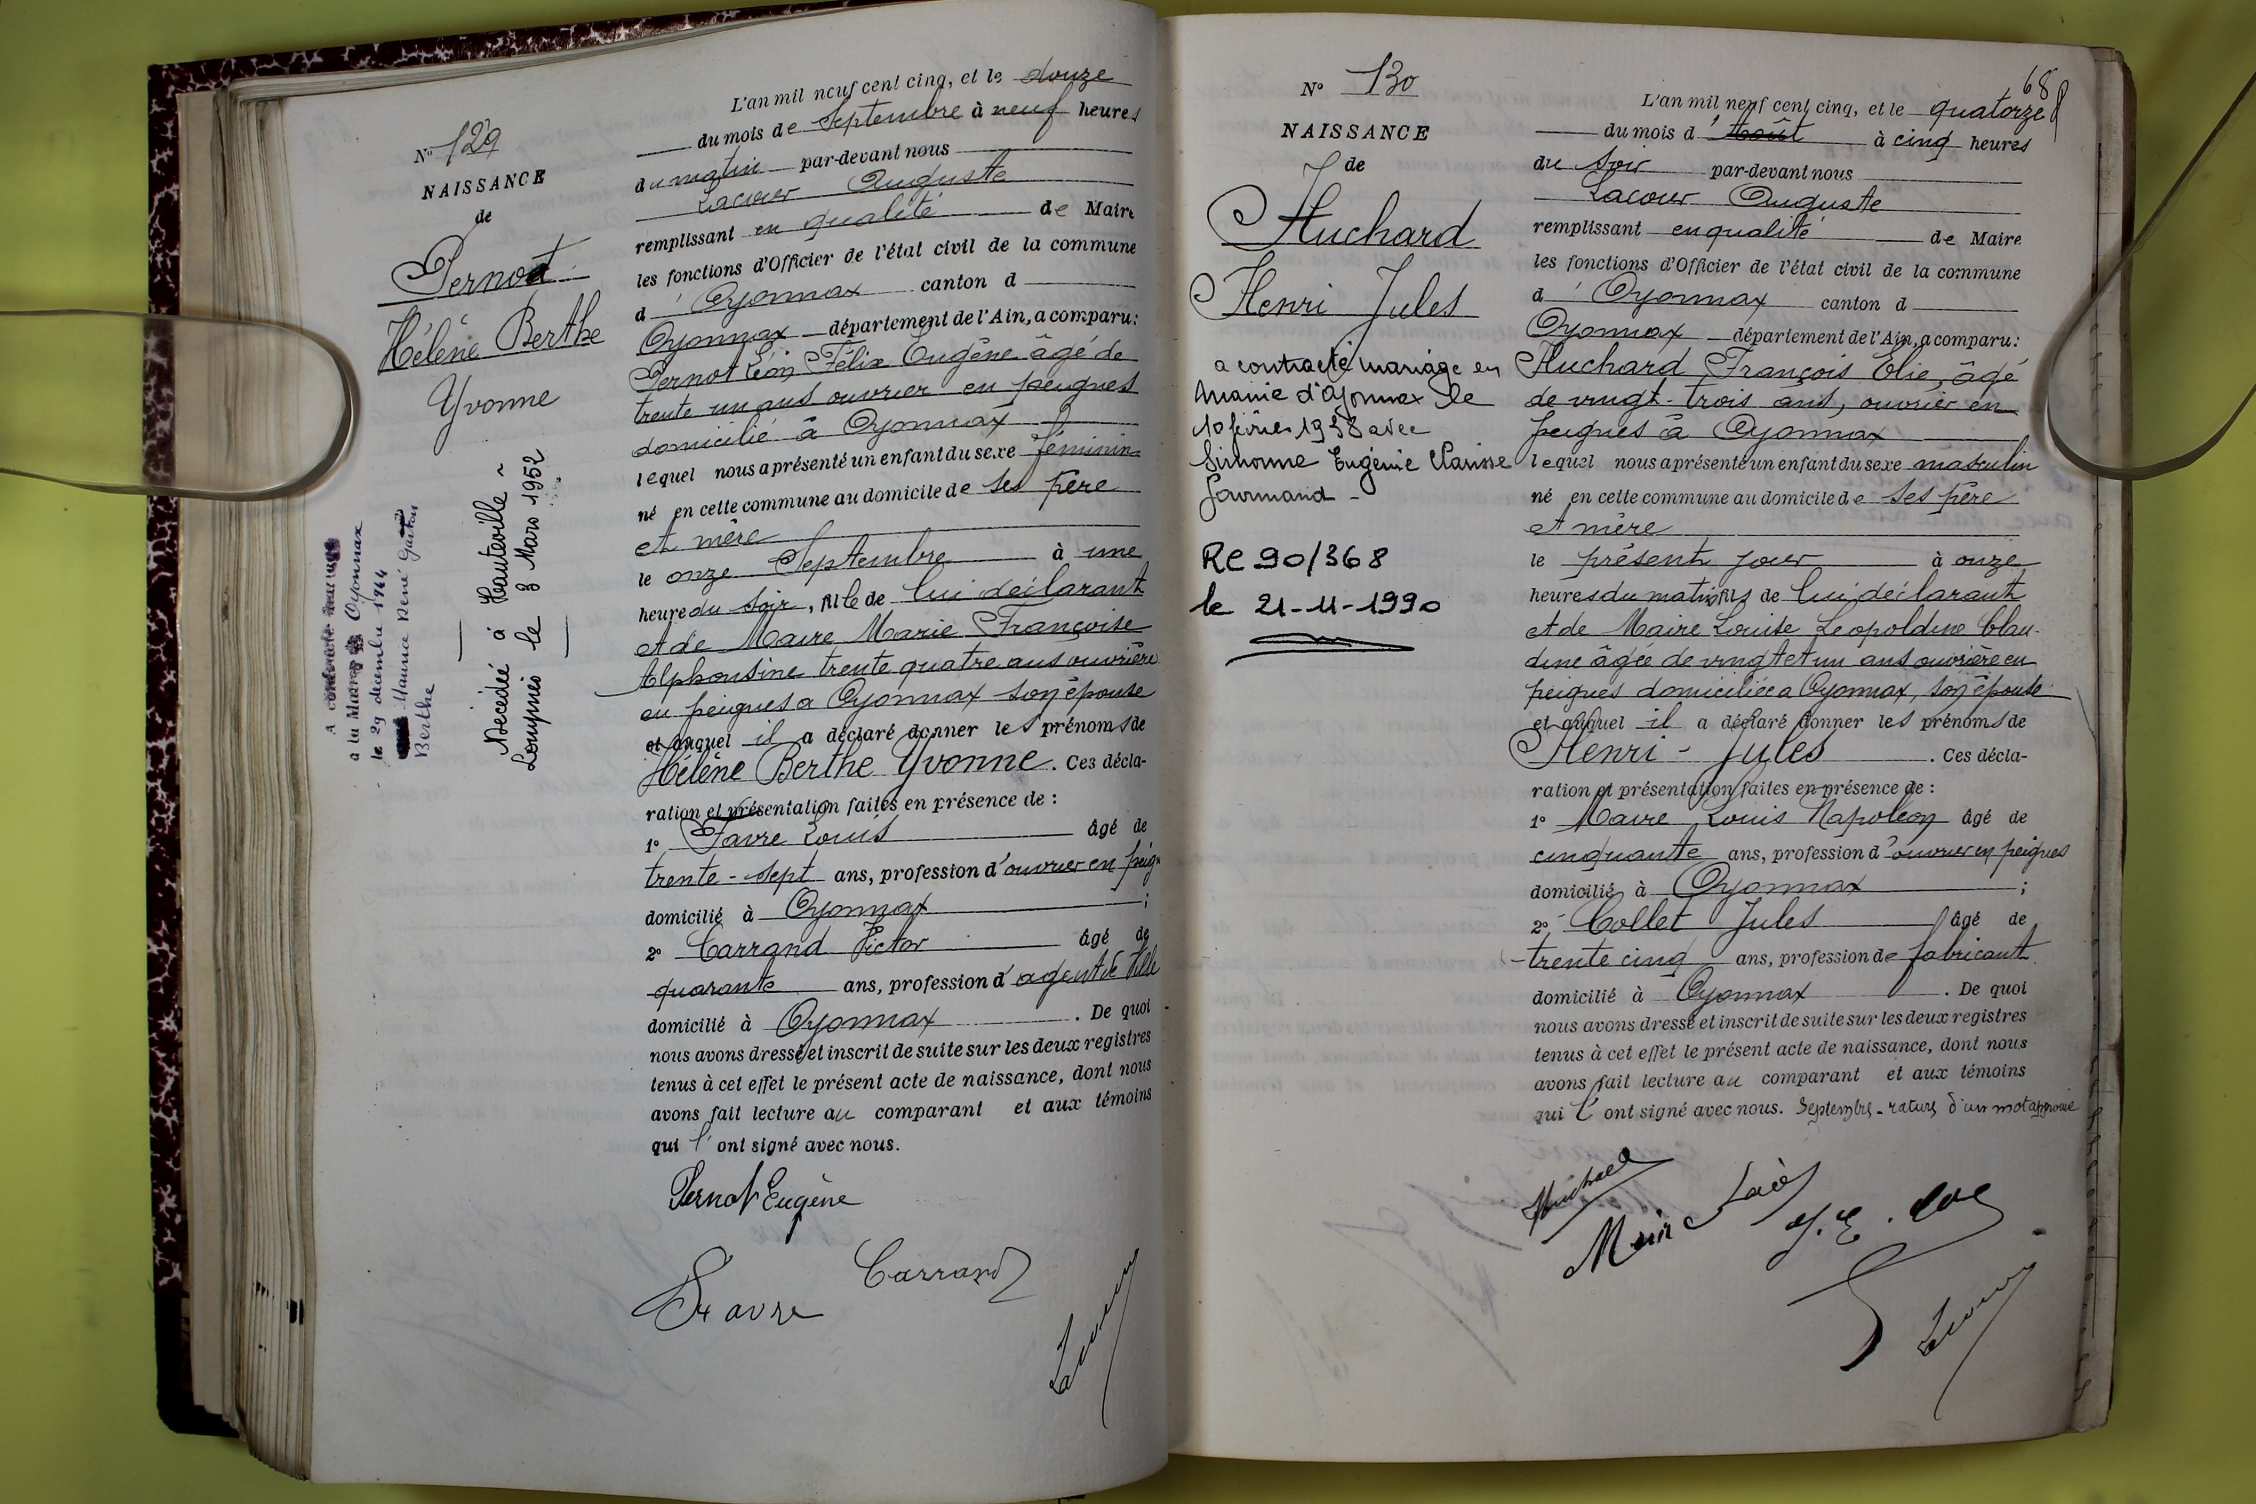 L'an mil neuf cent cinq, et le douze
du mois de Septembre à neuf heures
N° 129
NAISSANCE
de
Pernot
Hélène Berthe
Yvonne
du matin par-devant nous
Lacour Auguste
remplissant en qualité de Maire
les fonctions d'Officier de l'état civil de la commune
d'Oyonnax canton d
Oyonnax département de l'Ain, a comparu:
Pernot Léon Félix Eugène âgé de
trente un ans ouvrier en peignes
domicilié à Oyonnax
lequel nous a présenté un enfant du sexe féminin
né en cette commune au domicile de ses père
et mère
le onze Septembre à une
heure du soir, fille de lui déclarant
et de Maire Marie Françoise
Alphonsine trente quatre ans ouvrière
en peignes a Oyonnax son épouse
et auquel il a déclaré donner les prénoms de
Hélène Berthe Yvonne. Ces décla-
ration et présentation faites en présence de :
1° Favre Louis âgé de
trente-sept ans, profession d'ouvrier en peign
domicilié à Oyonnax ;
2° Carrand Victor âgé de
quarante ans, profession d'agent de ville
domicilié à Oyonnax. De quoi
nous avons dressé et inscrit de suite sur les deux registres
tenus à cet effet le présent acte de naissance, dont nous
avons fait lecture au comparant et aux témoins
qui l'ont signé avec nous.
Pernot Eugène
Favre
Carrand
Lacour
A contracté mariage
à la Mairie Oyonnax
le 29 décembre 1944
Maurice René Gaston
Berthe
Décédée à Hauteville-
Lompnes le 3 Mars 1952
68
N° 130
NAISSANCE
de
Huchard
Henri Jules
a contracté mariage en
Mairie d'Oyonnax le
10 février 1938 avec
Simonne Eugénie Clarisse
Gourmand -
RC 90/368
le 21-11-1990
L'an mil neuf cent cinq, et le quatorze
du mois d'Août à cinq heures
du soir par-devant nous
Lacour Auguste
remplissant en qualité de Maire
les fonctions d'Officier de l'état civil de la commune
d'Oyonnax canton d
Oyonnax département de l'Ain, a comparu:
Huchard François Elie, âgé
de vingt-trois ans, ouvrier en
peignes à Oyonnax
lequel nous a présenté un enfant du sexe masculin
né en cette commune au domicile de ses père
et mère
le présent jour à onze
heures du matin, fils de lui déclarant
et de Maire Louise Léopoldine Clau-
dine âgée de vingt et un ans ouvrière en
peignes domiciliée a Oyonnax, son épouse
et auquel il a déclaré donner les prénoms de
Henri-Jules. Ces décla-
ration et présentation faites en présence de :
1° Maire Louis Napoléon âgé de
cinquante ans, profession d'ouvrier en peignes
domicilié à Oyonnax ;
2° Collet Jules âgé de
trente cinq ans, profession de fabricant
domicilié à Oyonnax. De quoi
nous avons dressé et inscrit de suite sur les deux registres
tenus à cet effet le présent acte de naissance, dont nous
avons fait lecture au comparant et aux témoins
qui l'ont signé avec nous. Septembre - rature d'un mot approuvé
Huchard
Lacour